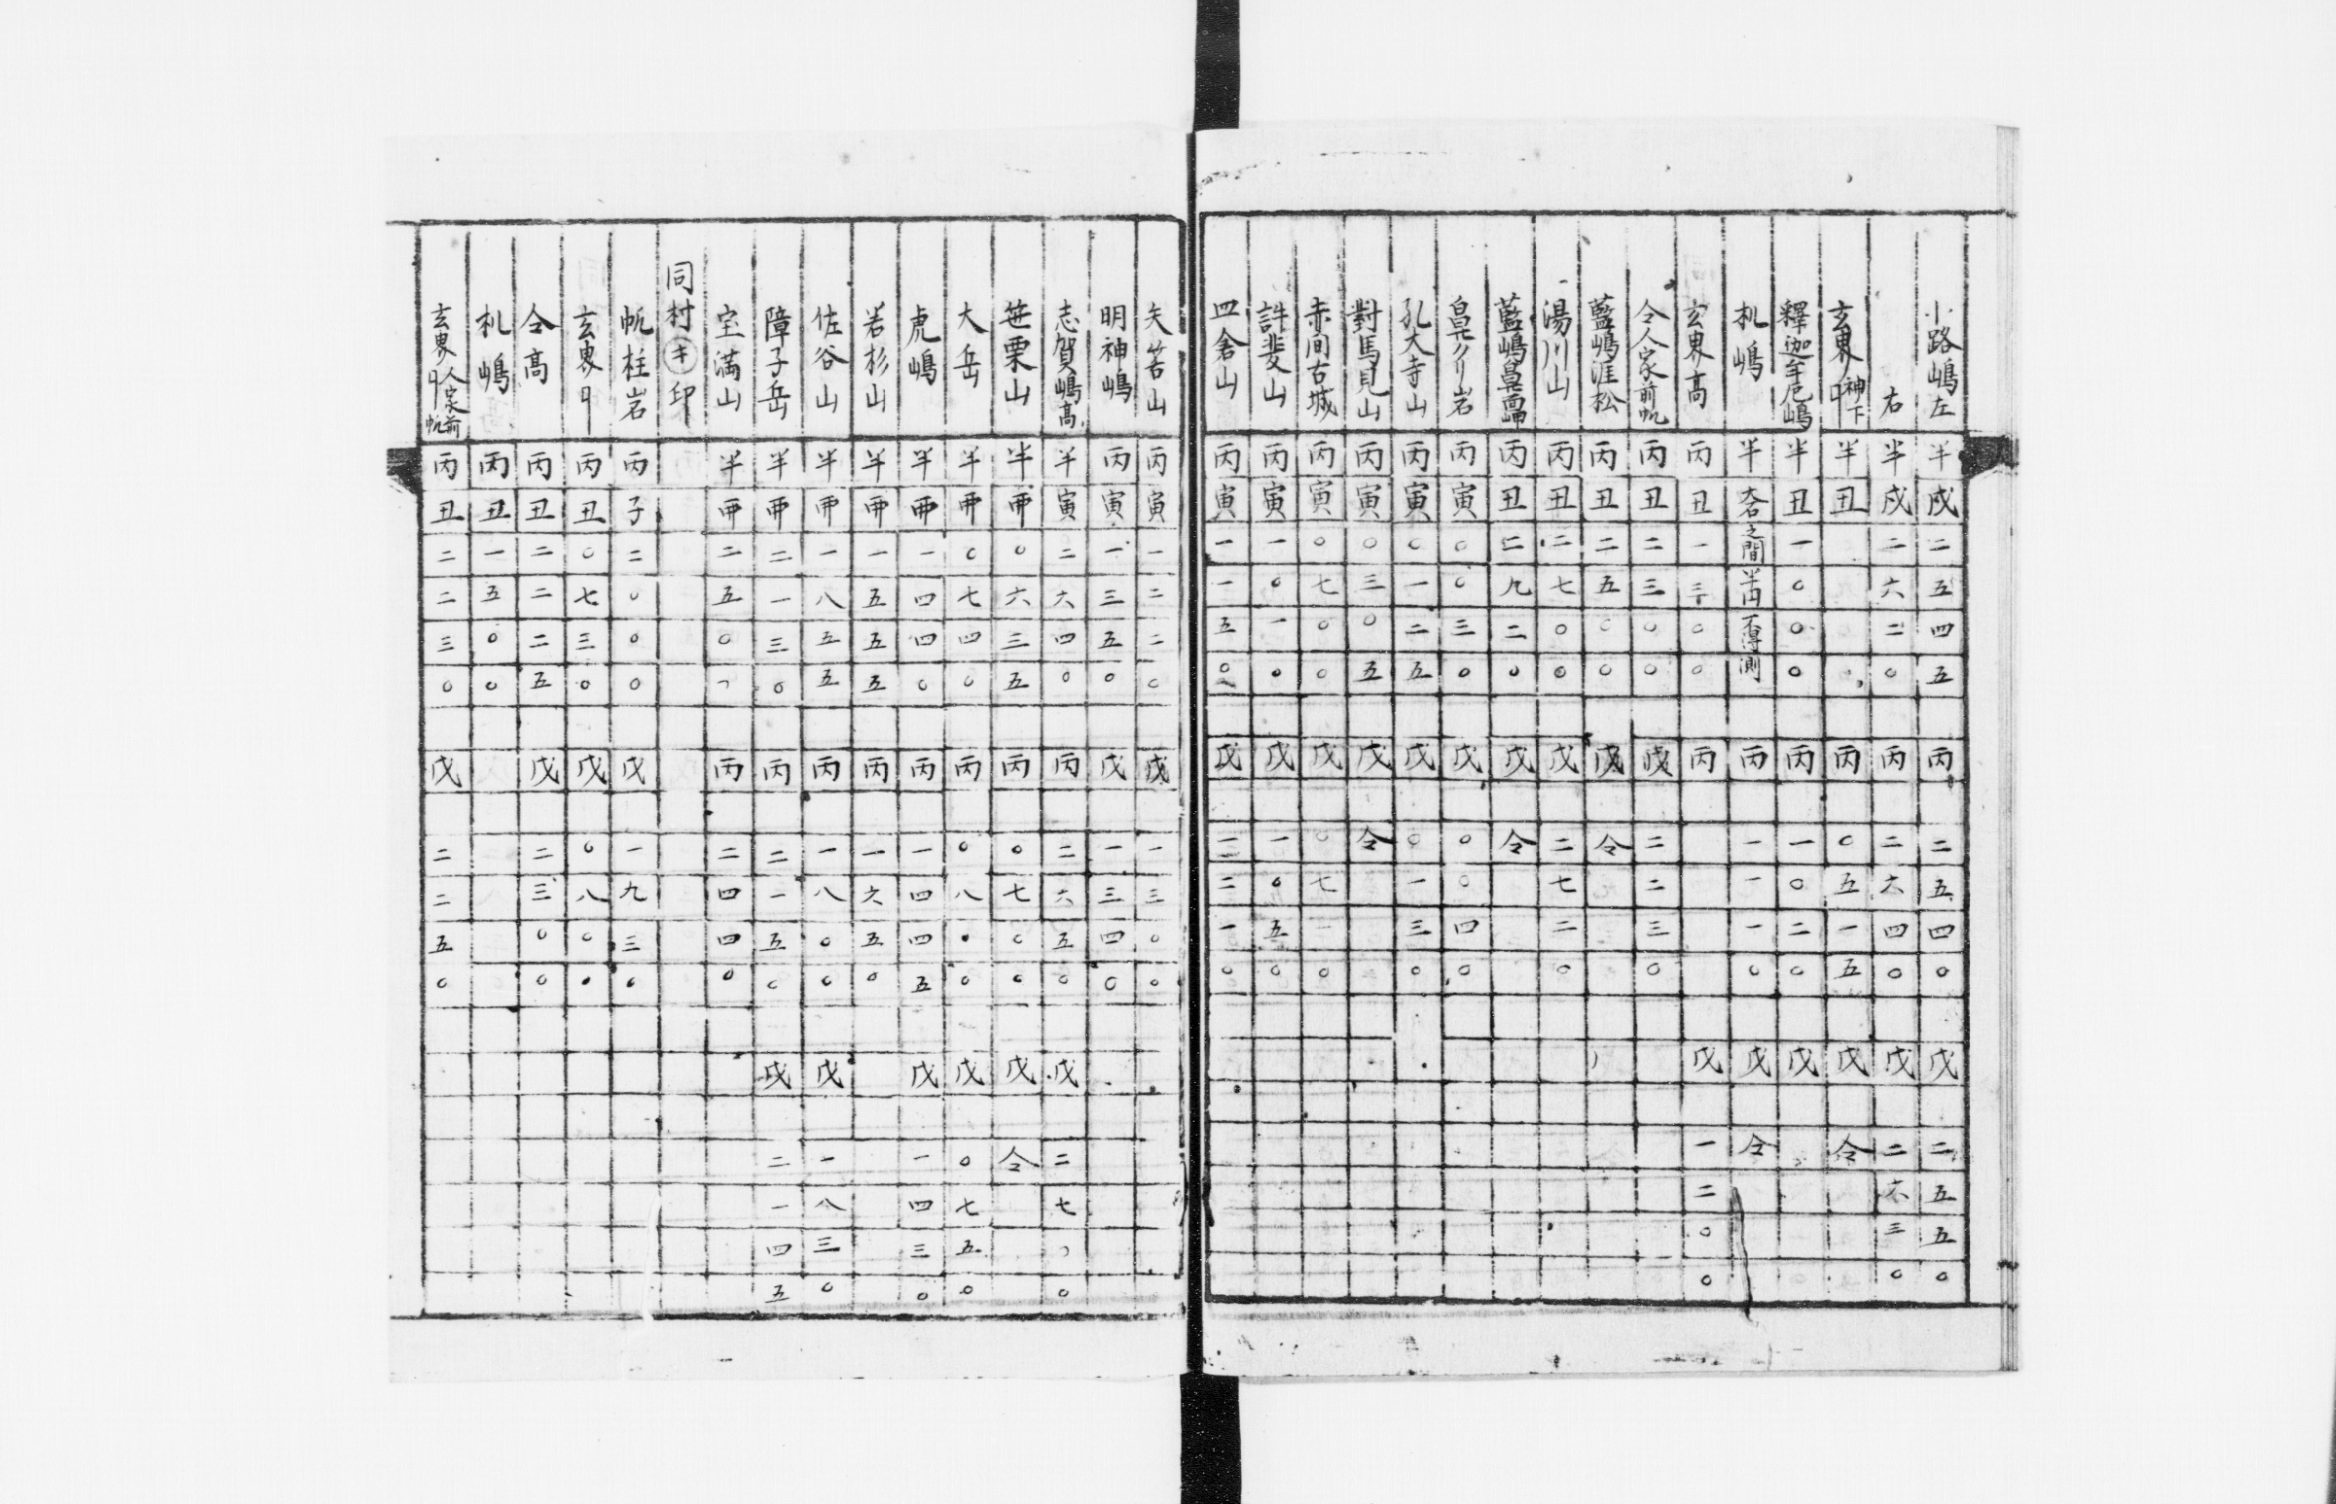 小路嶋左 半戌 二五四五 丙 二五四〇 戊 二五五〇
右 半戌 二六二〇 丙 二六四〇 戊 二六三〇
玄界ノ神下 半丑 丙 〇五一五 戊 令
釋迦牟尼嶋 半丑 一〇〇〇 丙 一〇二〇 戊
机嶋 半 之間 不得測 丙 一一一〇 戊 令
玄界高 丙丑 一三〇〇 丙 戊 一二〇〇
令人家前帆 丙丑 二三〇〇 戊 二二三〇
藍嶋涯松 丙丑 二五〇〇 戊 令
湯川山 丙丑 二七〇〇 戊 二七二〇
藍嶋鼻端 丙丑 二九二〇 戊 令
鼻クリ岩 丙寅 〇〇三〇 戊 〇〇四〇
孔大寺山 丙寅 〇一二五 戊 〇一三〇
對馬見山 丙寅 〇三〇五 戊 令
赤间古城 丙寅 〇七〇〇 戊 〇七一〇
許斐山 丙寅 一〇一〇 戊 一〇五〇
四倉山 丙寅 一一五〇 戊 一二一〇
矢筈山 丙寅 一二二〇 戊 一三〇〇
明神嶋 丙寅 一三五〇 戊 一三四〇
志賀嶋高 半寅 二六四〇 丙 二六五〇 戊 二七〇〇
笹栗山 半丣 〇六三五 丙 〇七〇〇 戊 令
大岳 半丣 〇七四〇 丙 〇八〇〇 戊 〇七五〇
虎嶋 半丣 一四四〇 丙 一四四五 戊 一四三〇
若杉山 半丣 一五五五 丙 一六五〇
佐谷山 半丣 一八五五 丙 一八〇〇 戊 一八三〇
障子岳 半丣 二一三〇 丙 二一五〇 戊 二一四五
宝満山 半丣 二五〇〇 丙 二四四〇
同村㋖印
帆柱岩 丙子 二〇〇〇 戊 一九三〇
玄界口 丙丑 〇七三〇 戊 〇八〇〇
令高 丙丑 二二二五 戊 二三〇〇
机嶋 丙丑 一五〇〇
玄界口人家前帆 丙丑 二二三〇 戊 二二五〇